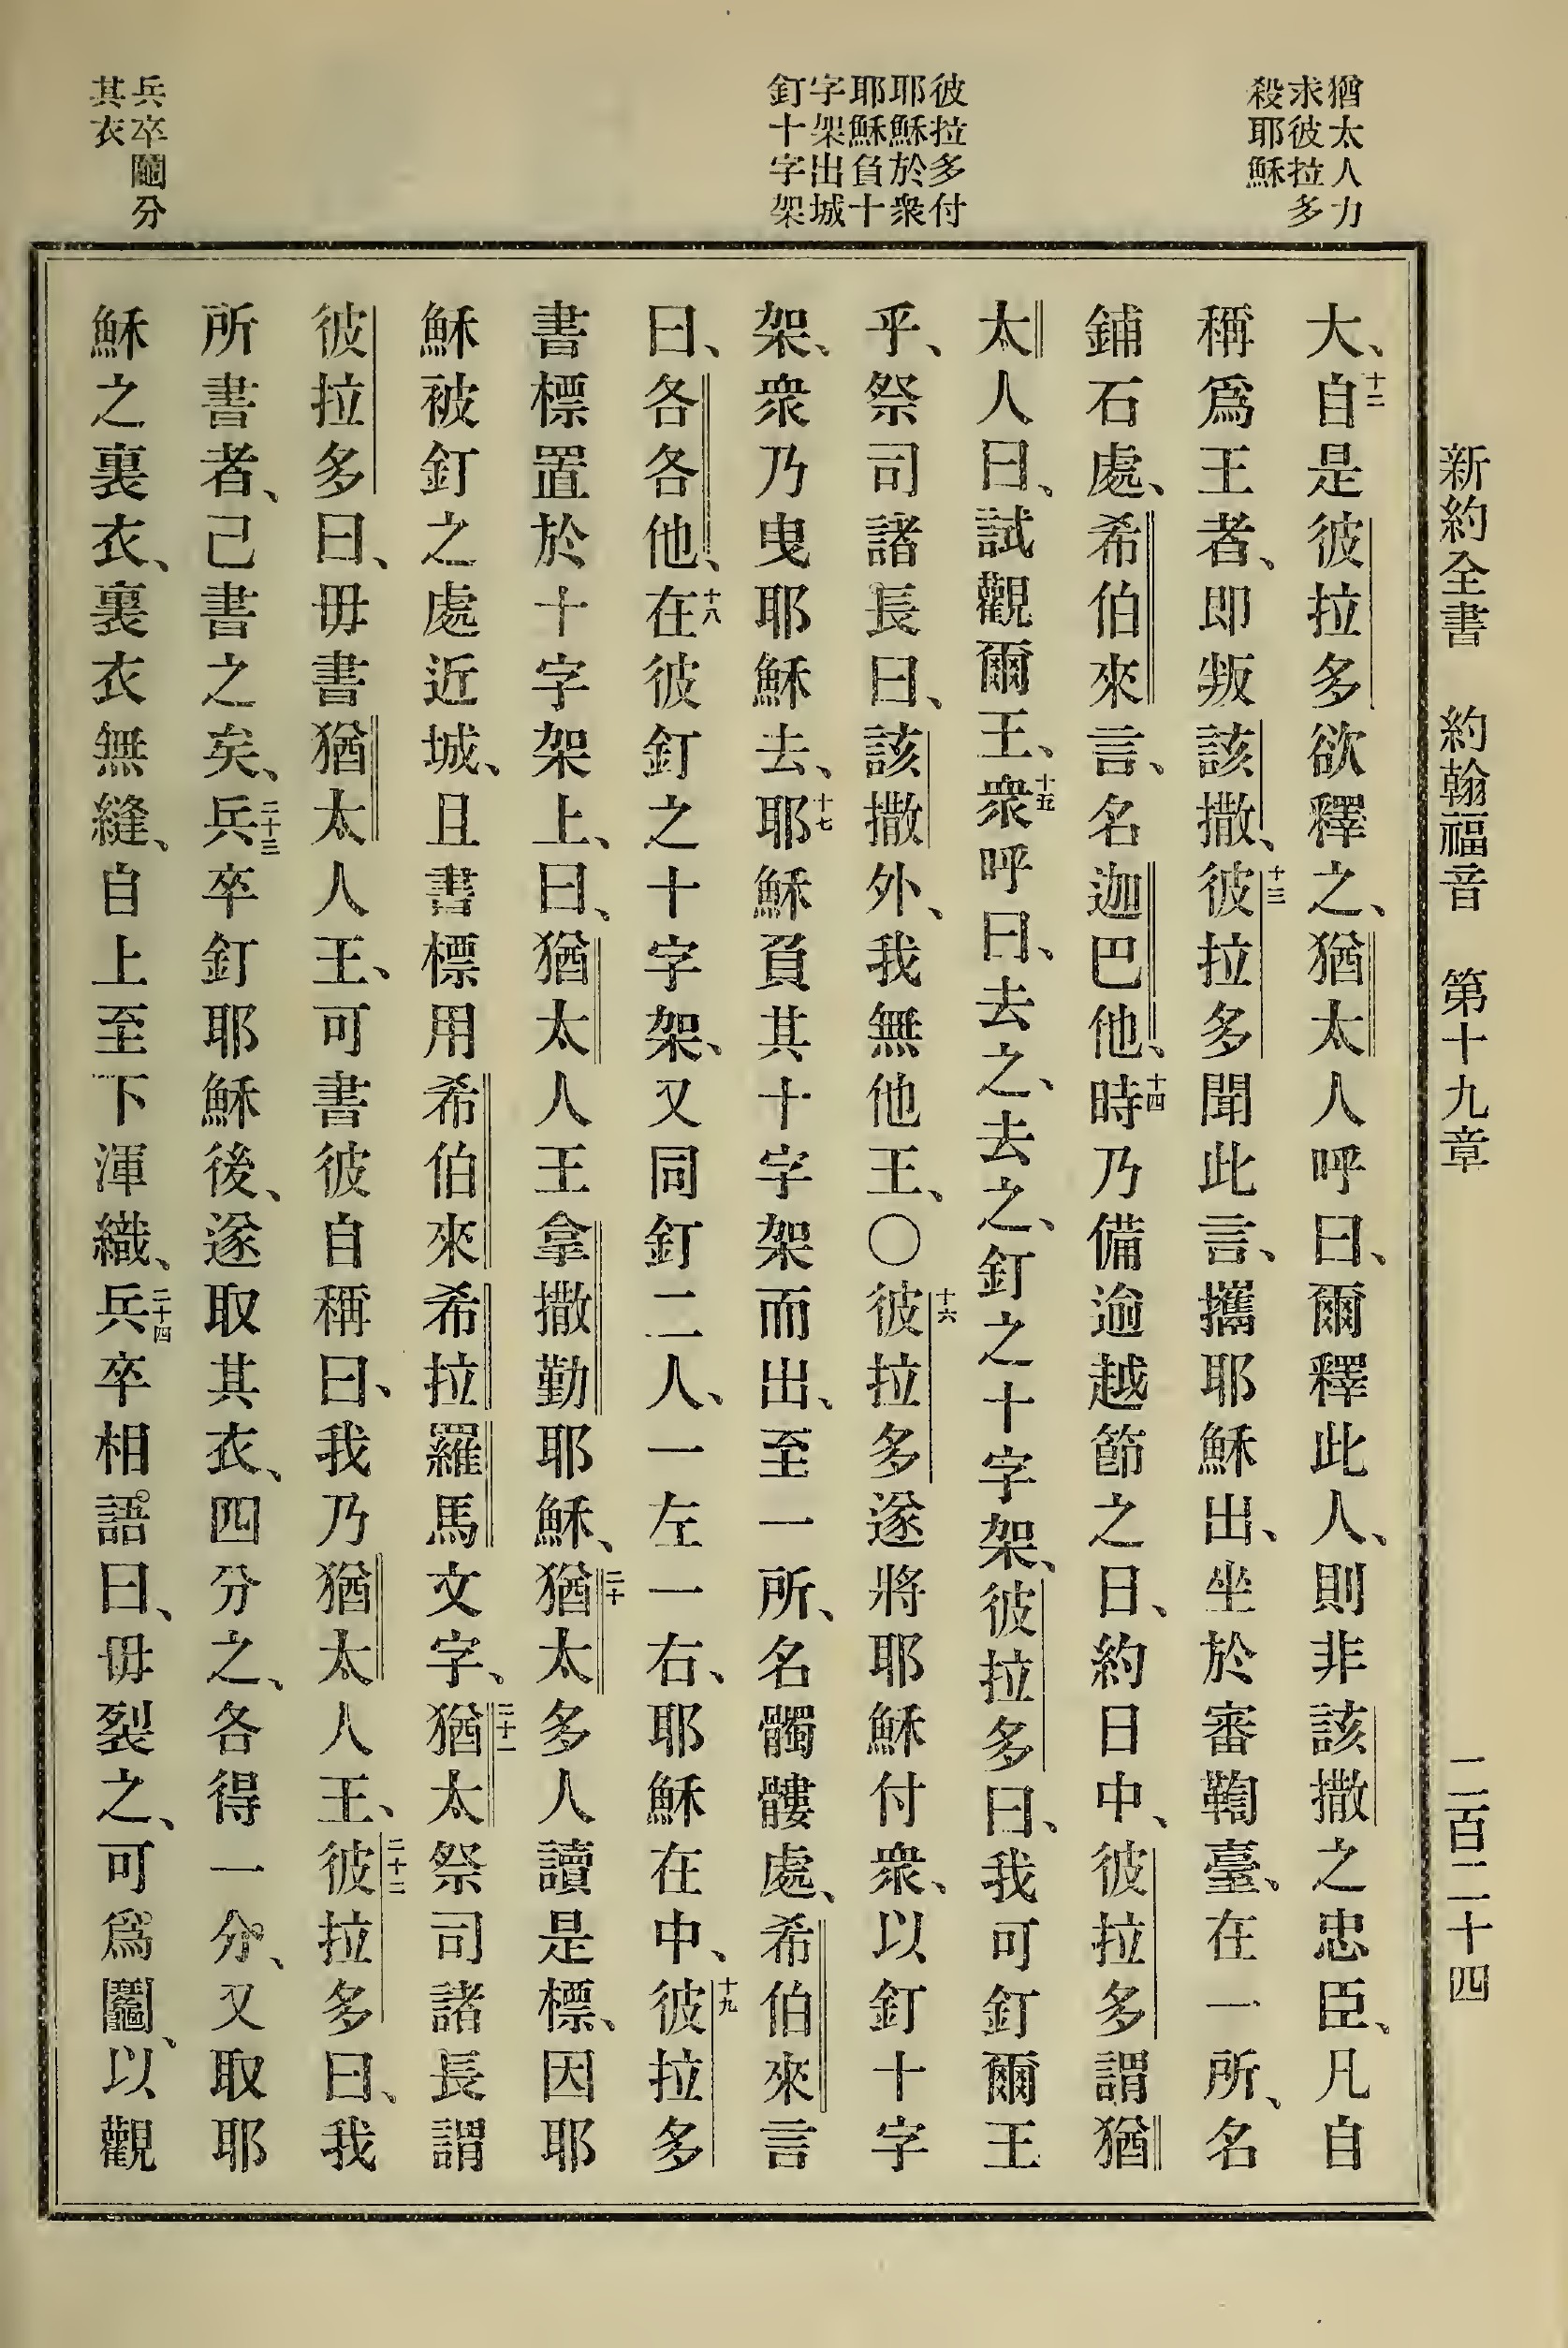 新約全書 約翰福音 第十九章 二百二十四
猶太人力
求彼拉多
殺耶穌
彼拉多付
耶穌於衆
耶穌負十
字架出城
釘十字架
兵卒鬮分
其衣
大、十二自是彼拉多欲釋之、猶太人呼曰、爾釋此人、則非該撒之忠臣、凡自
稱爲王者、即叛該撒、十三彼拉多聞此言、攜耶穌出、坐於審鞫臺、在一所、名
鋪石處、希伯來言、名迦巴他、十四時乃備逾越節之日、約日中、彼拉多謂猶
太人曰、試觀爾王、十五衆呼曰、去之、去之、釘之十字架、彼拉多曰、我可釘爾王
乎、祭司諸長曰、該撒外、我無他王、〇十六彼拉多遂將耶穌付衆、以釘十字
架、衆乃曳耶穌去、十七耶穌負其十字架而出、至一所、名髑髏處、希伯來言
曰、各各他、十八在彼釘之十字架、又同釘二人、一左一右、耶穌在中、十九彼拉多
書標置於十字架上、曰、猶太人王拿撒勒耶穌、二十猶太多人讀是標、因耶
穌被釘之處近城、且書標用希伯來希拉羅馬文字、二十一猶太祭司諸長謂
彼拉多曰、毋書猶太人王、可書彼自稱曰、我乃猶太人王、二十二彼拉多曰、我
所書者、己書之矣、二十三兵卒釘耶穌後、遂取其衣、四分之、各得一分、又取耶
穌之裏衣、裏衣無縫、自上至下渾織、二十四兵卒相語曰、毋裂之、可爲鬮、以觀